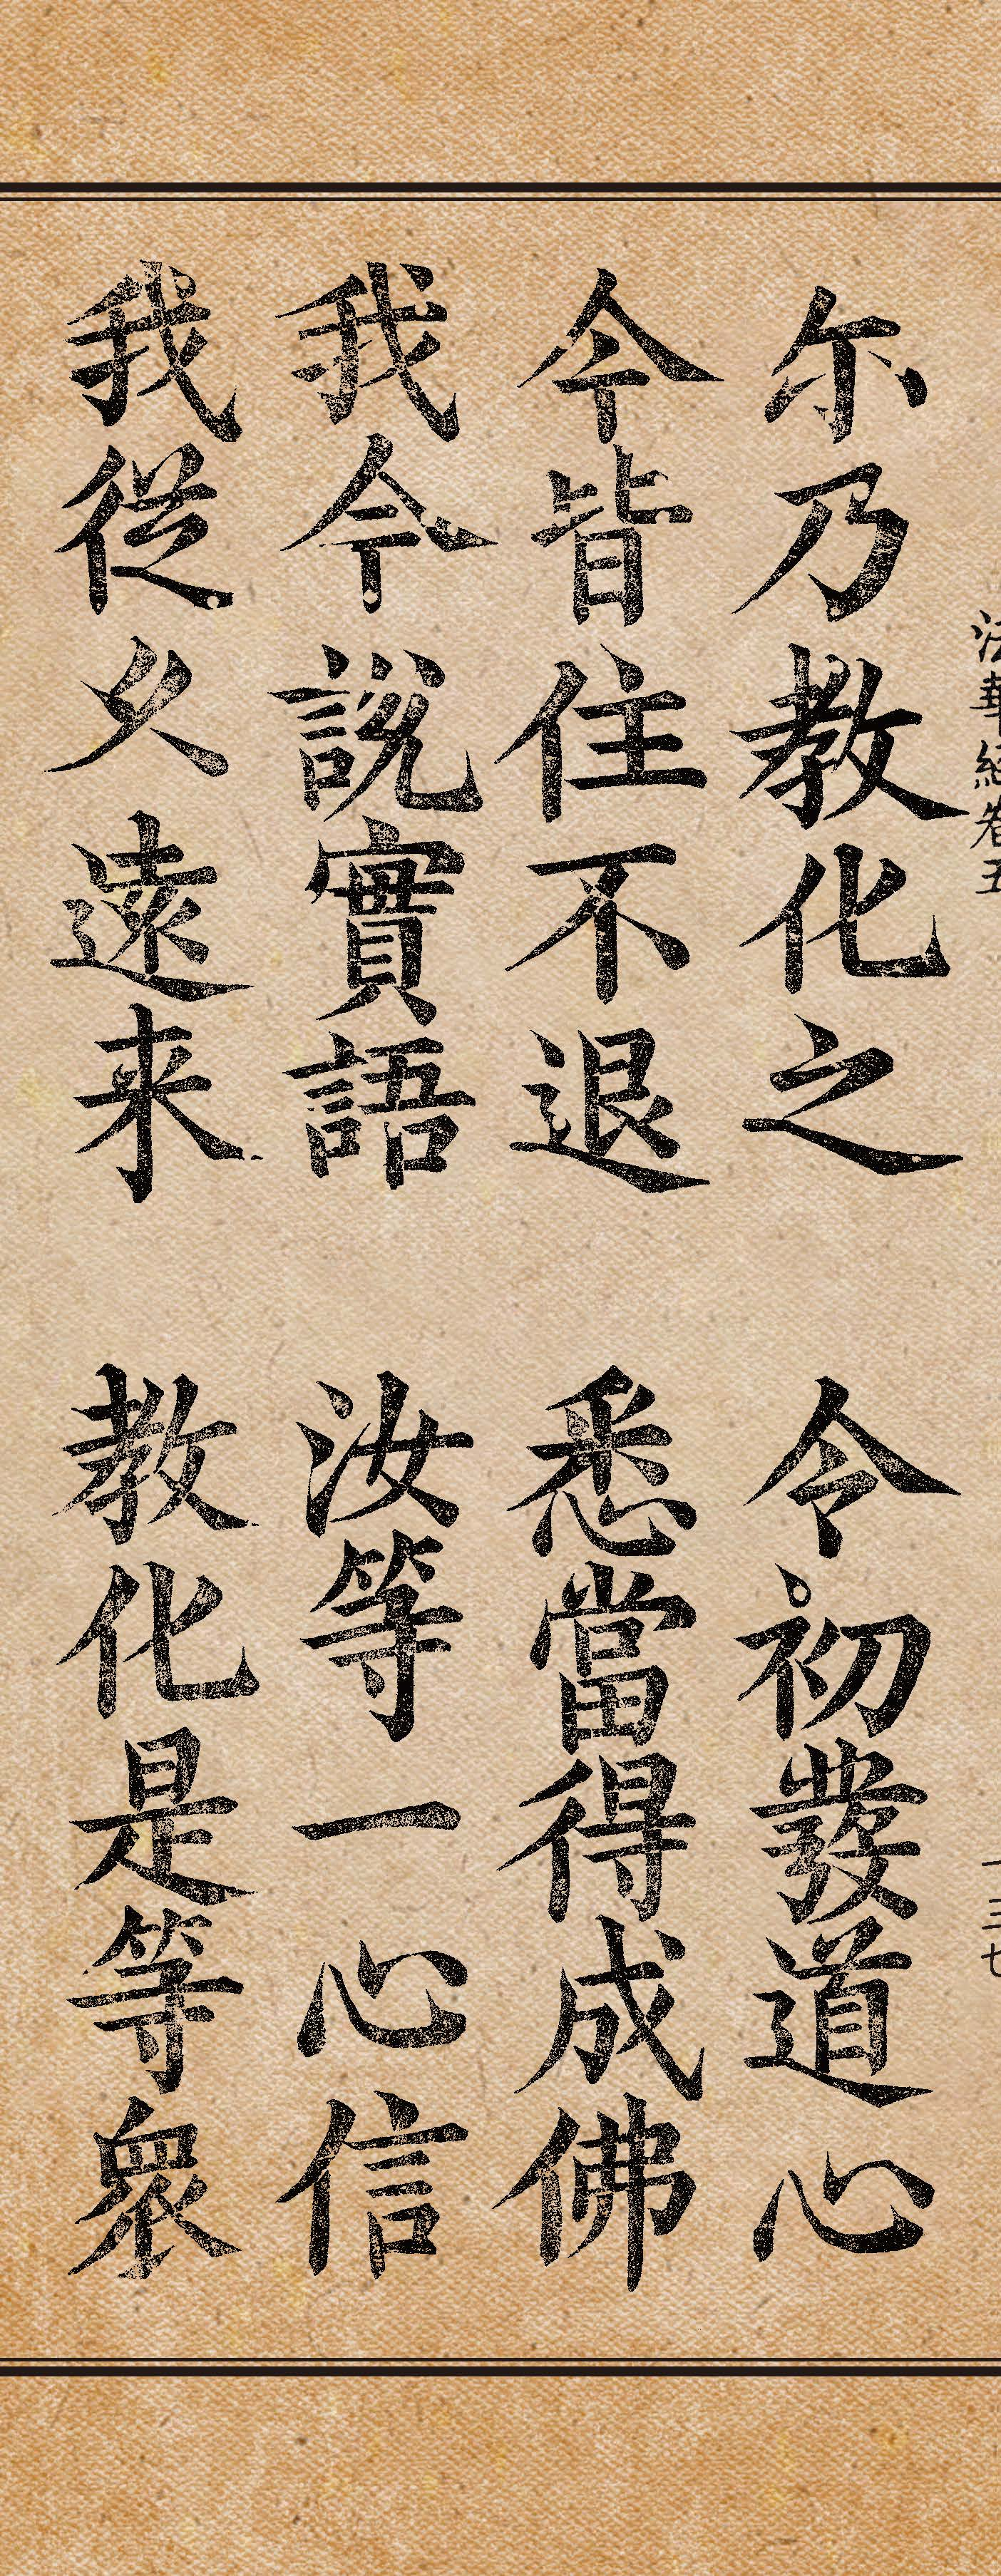 法華經卷五 一三七
尔乃教化之 令初發道心
今皆住不退 悉當得成佛
我今説實語 汝等一心信
我従久遠来 教化是等衆